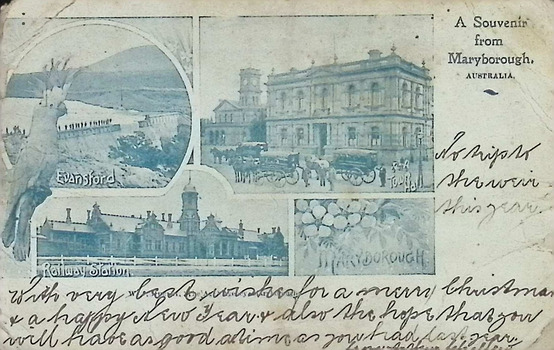 A Souvenir
from
Maryborough,
AUSTRALIA.
Evansford
Town Hall
Railway Station
MARYBOROUGH
No trip to
the weir
this year.
With very best wishes for a merry Christmas
& a happy New Year & also the hope that you
will have as good a time as you had last year.